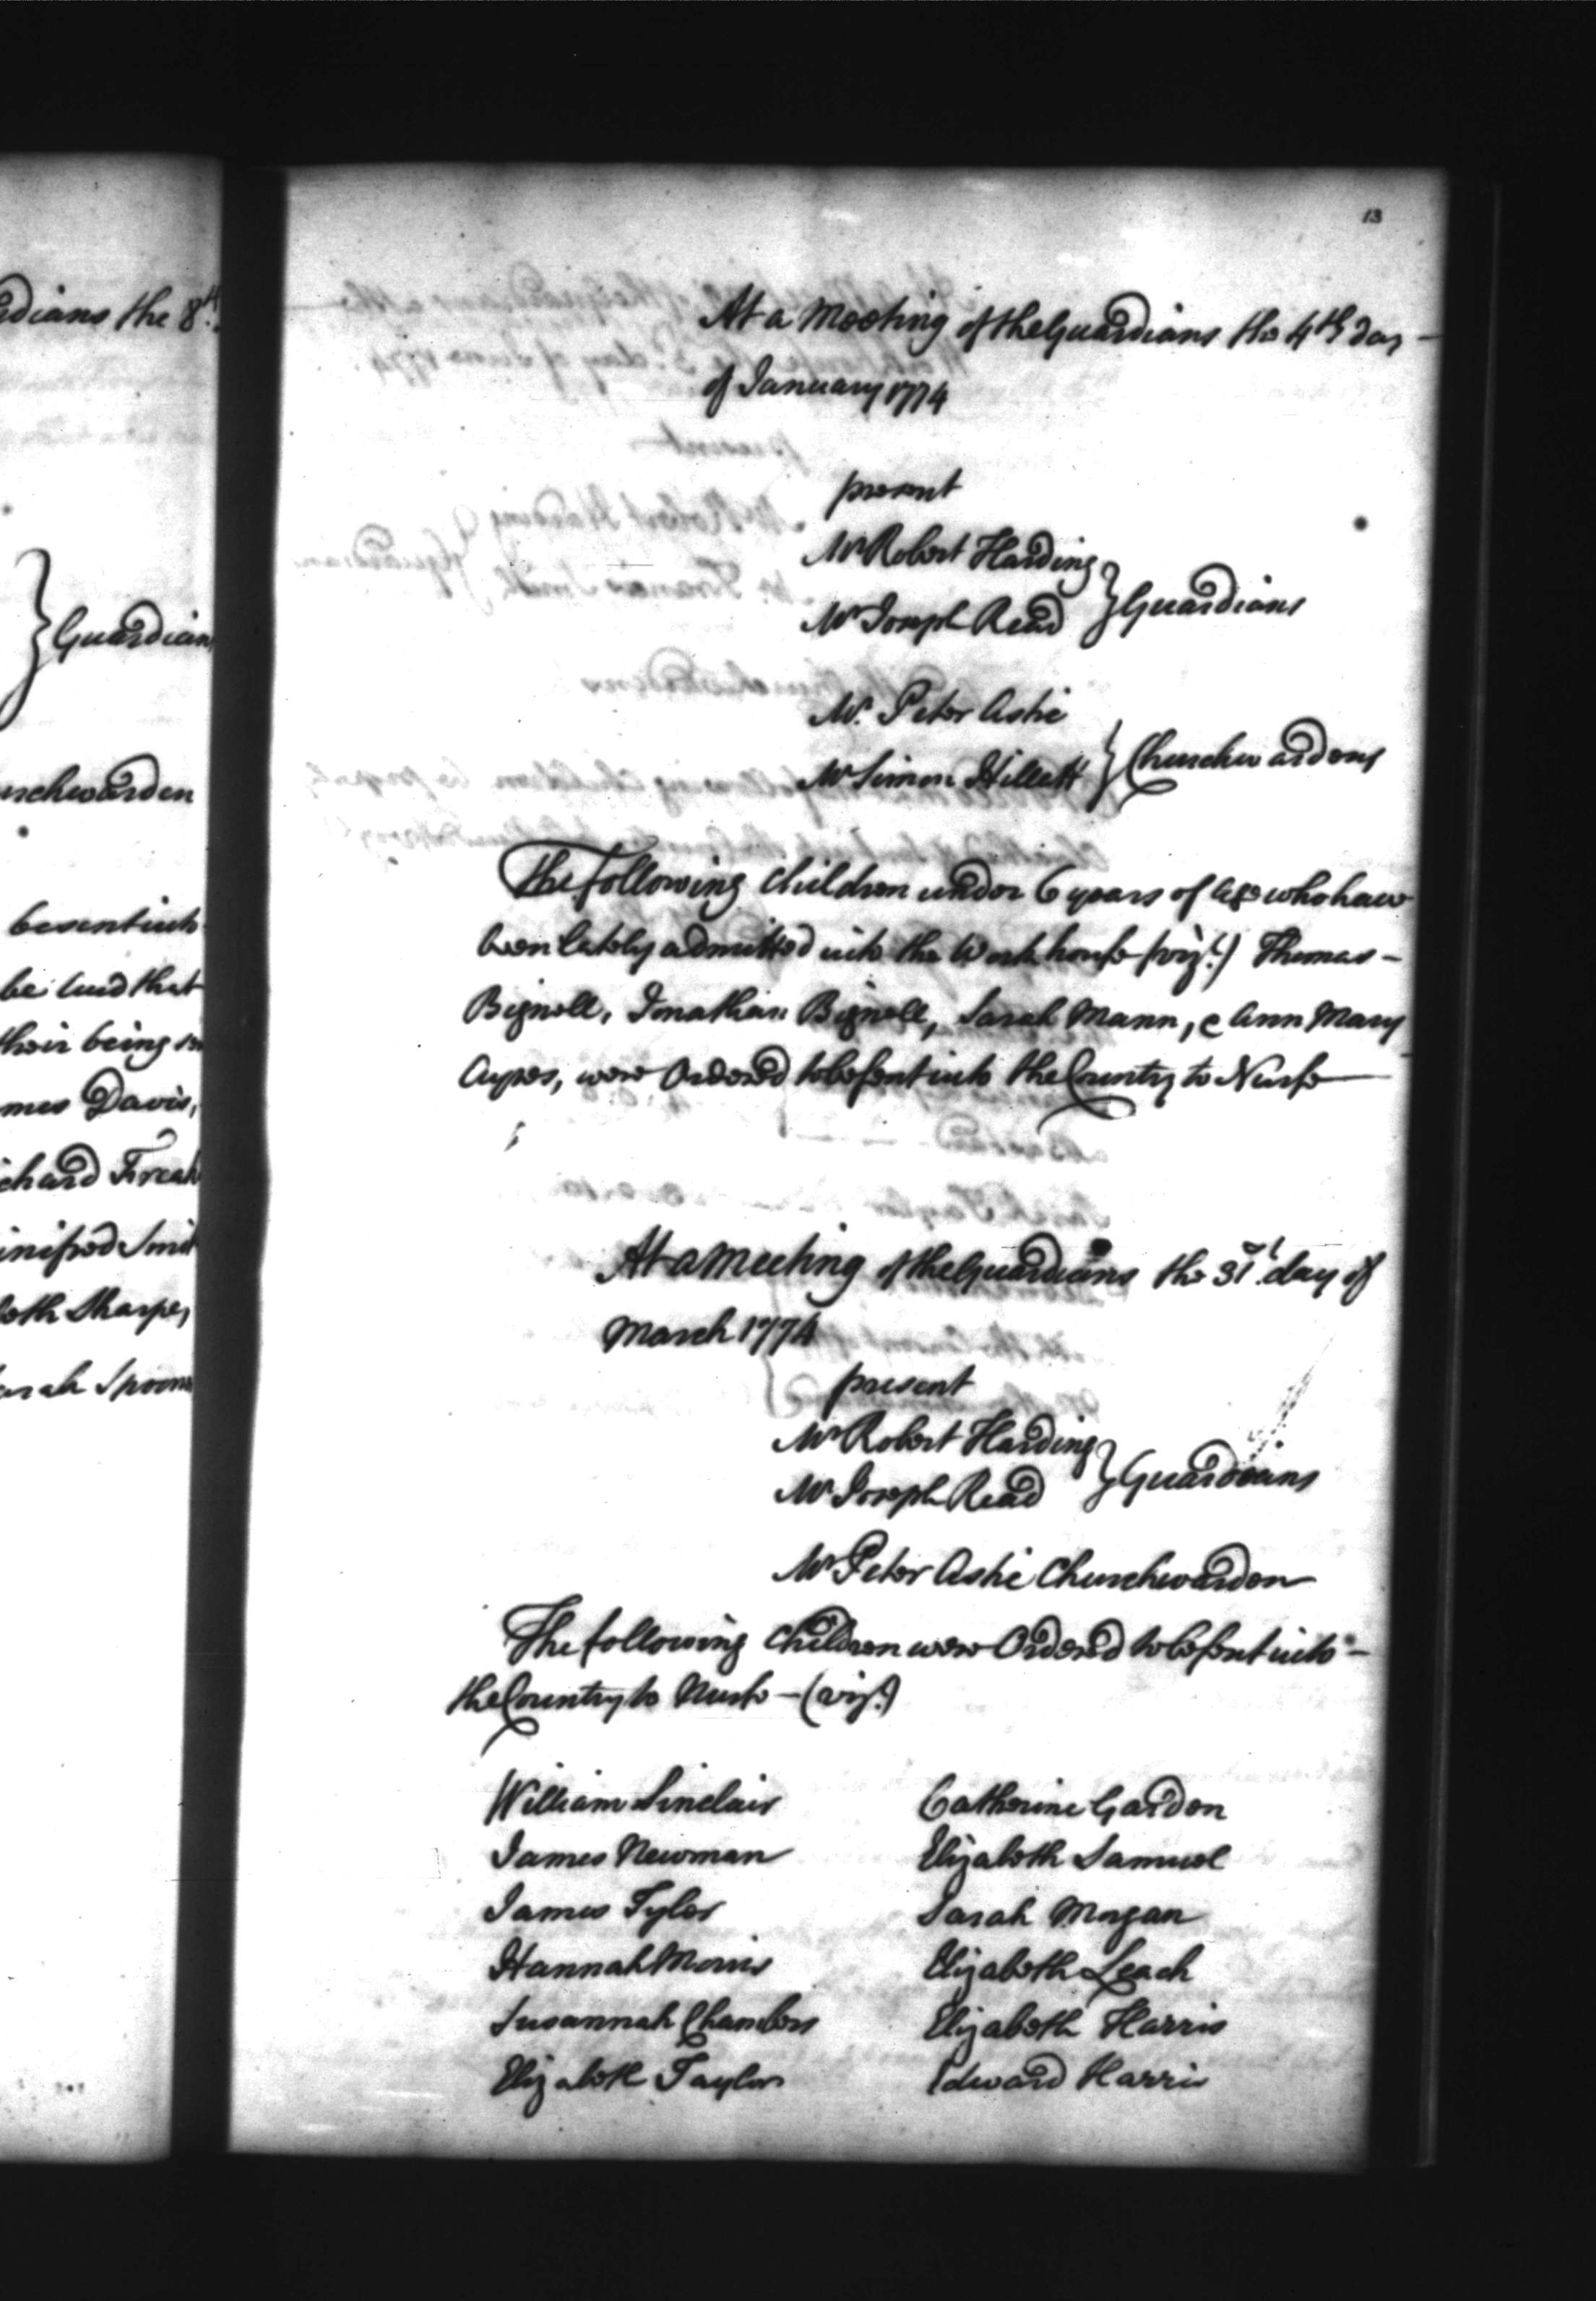 dians the 8th
Guardian
urchwarden
be sent into
be and that
their being
mes Davis,
chard
inifred Smit
beth Sharpe,
arah Spoon
13
At a Meeting of the Guardians the 4th day
of January 1774
present
Mr Robert Harding
Mr Joseph Read } Guardians
Mr. Peter Ashe
Mr Simon Hillett } Churchwardens
The following Children under 6 years of Age who have
been lately admitted into the Workhouse (vizt.) Thomas -
Bignell, Jonathan Bignell, Sarah Mann, & Ann Mary
Aypes, were Ordered to be sent into the Country to Nurse
At a Meeting of the Guardians the 31st. day of
March 1774
present
Mr Robert Harding
Mr Joseph Read } Guardians
Mr Peter Ashe Churchwarden
The following Children were Ordered to be sent into -
the Country to Nurse - (vizt.)
William Sinclair Catherine Gardon
James Newman Elizabeth Samuel
James Tyler Sarah Morgan
Hannah Morris Elizabeth Leach
Susannah Chambers Elizabeth Harris
Elizabeth Taylor Edward Harris